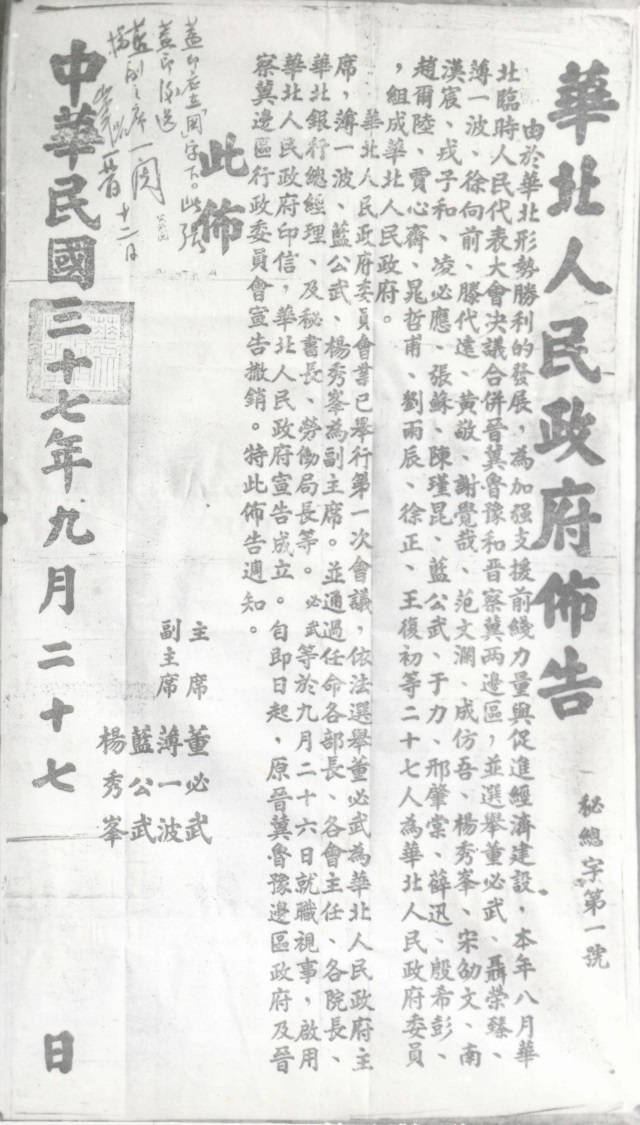 華北人民政府佈告
秘總字第一號
由於華北形勢勝利的發展，為加强支援前綫力量與促進經濟建設，本年八月華
北臨時人民代表大會決議合併晉冀魯豫和晉察冀兩邊區，並選舉董必武、聶榮臻、
薄一波、徐向前、滕代遠、黃敬、謝覺哉、范文瀾、成仿吾、楊秀峯、宋劭文、南
漢宸、戎子和、凌必應、張蘇、陳瑾昆、藍公武、于力、邢肇棠、薛迅、殷希彭、
趙爾陸、賈心齋、晁哲甫、劉雨辰、徐正、王復初等二十七人為華北人民政府委員
，組成華北人民政府。
華北人民政府委員會業已舉行第一次會議，依法選舉董必武為華北人民政府主
席，薄一波、藍公武、楊秀峯為副主席。並通過任命各部長、各會主任、各院長、
華北銀行總經理、及秘書長、勞働局長等。必武等於九月二十六日就職視事，啟用
華北人民政府印信，華北人民政府宣告成立。自即日起，原晉冀魯豫邊區政府及晉
察冀邊區行政委員會宣告撤銷。特此佈告週知。
此佈
主席 董必武
副主席 薄一波
藍公武
楊秀峯
蓋印在國字下。此張
蓋印後送
藍副主席一閱
楊
十二日
中華民國三十七年九月二十七日